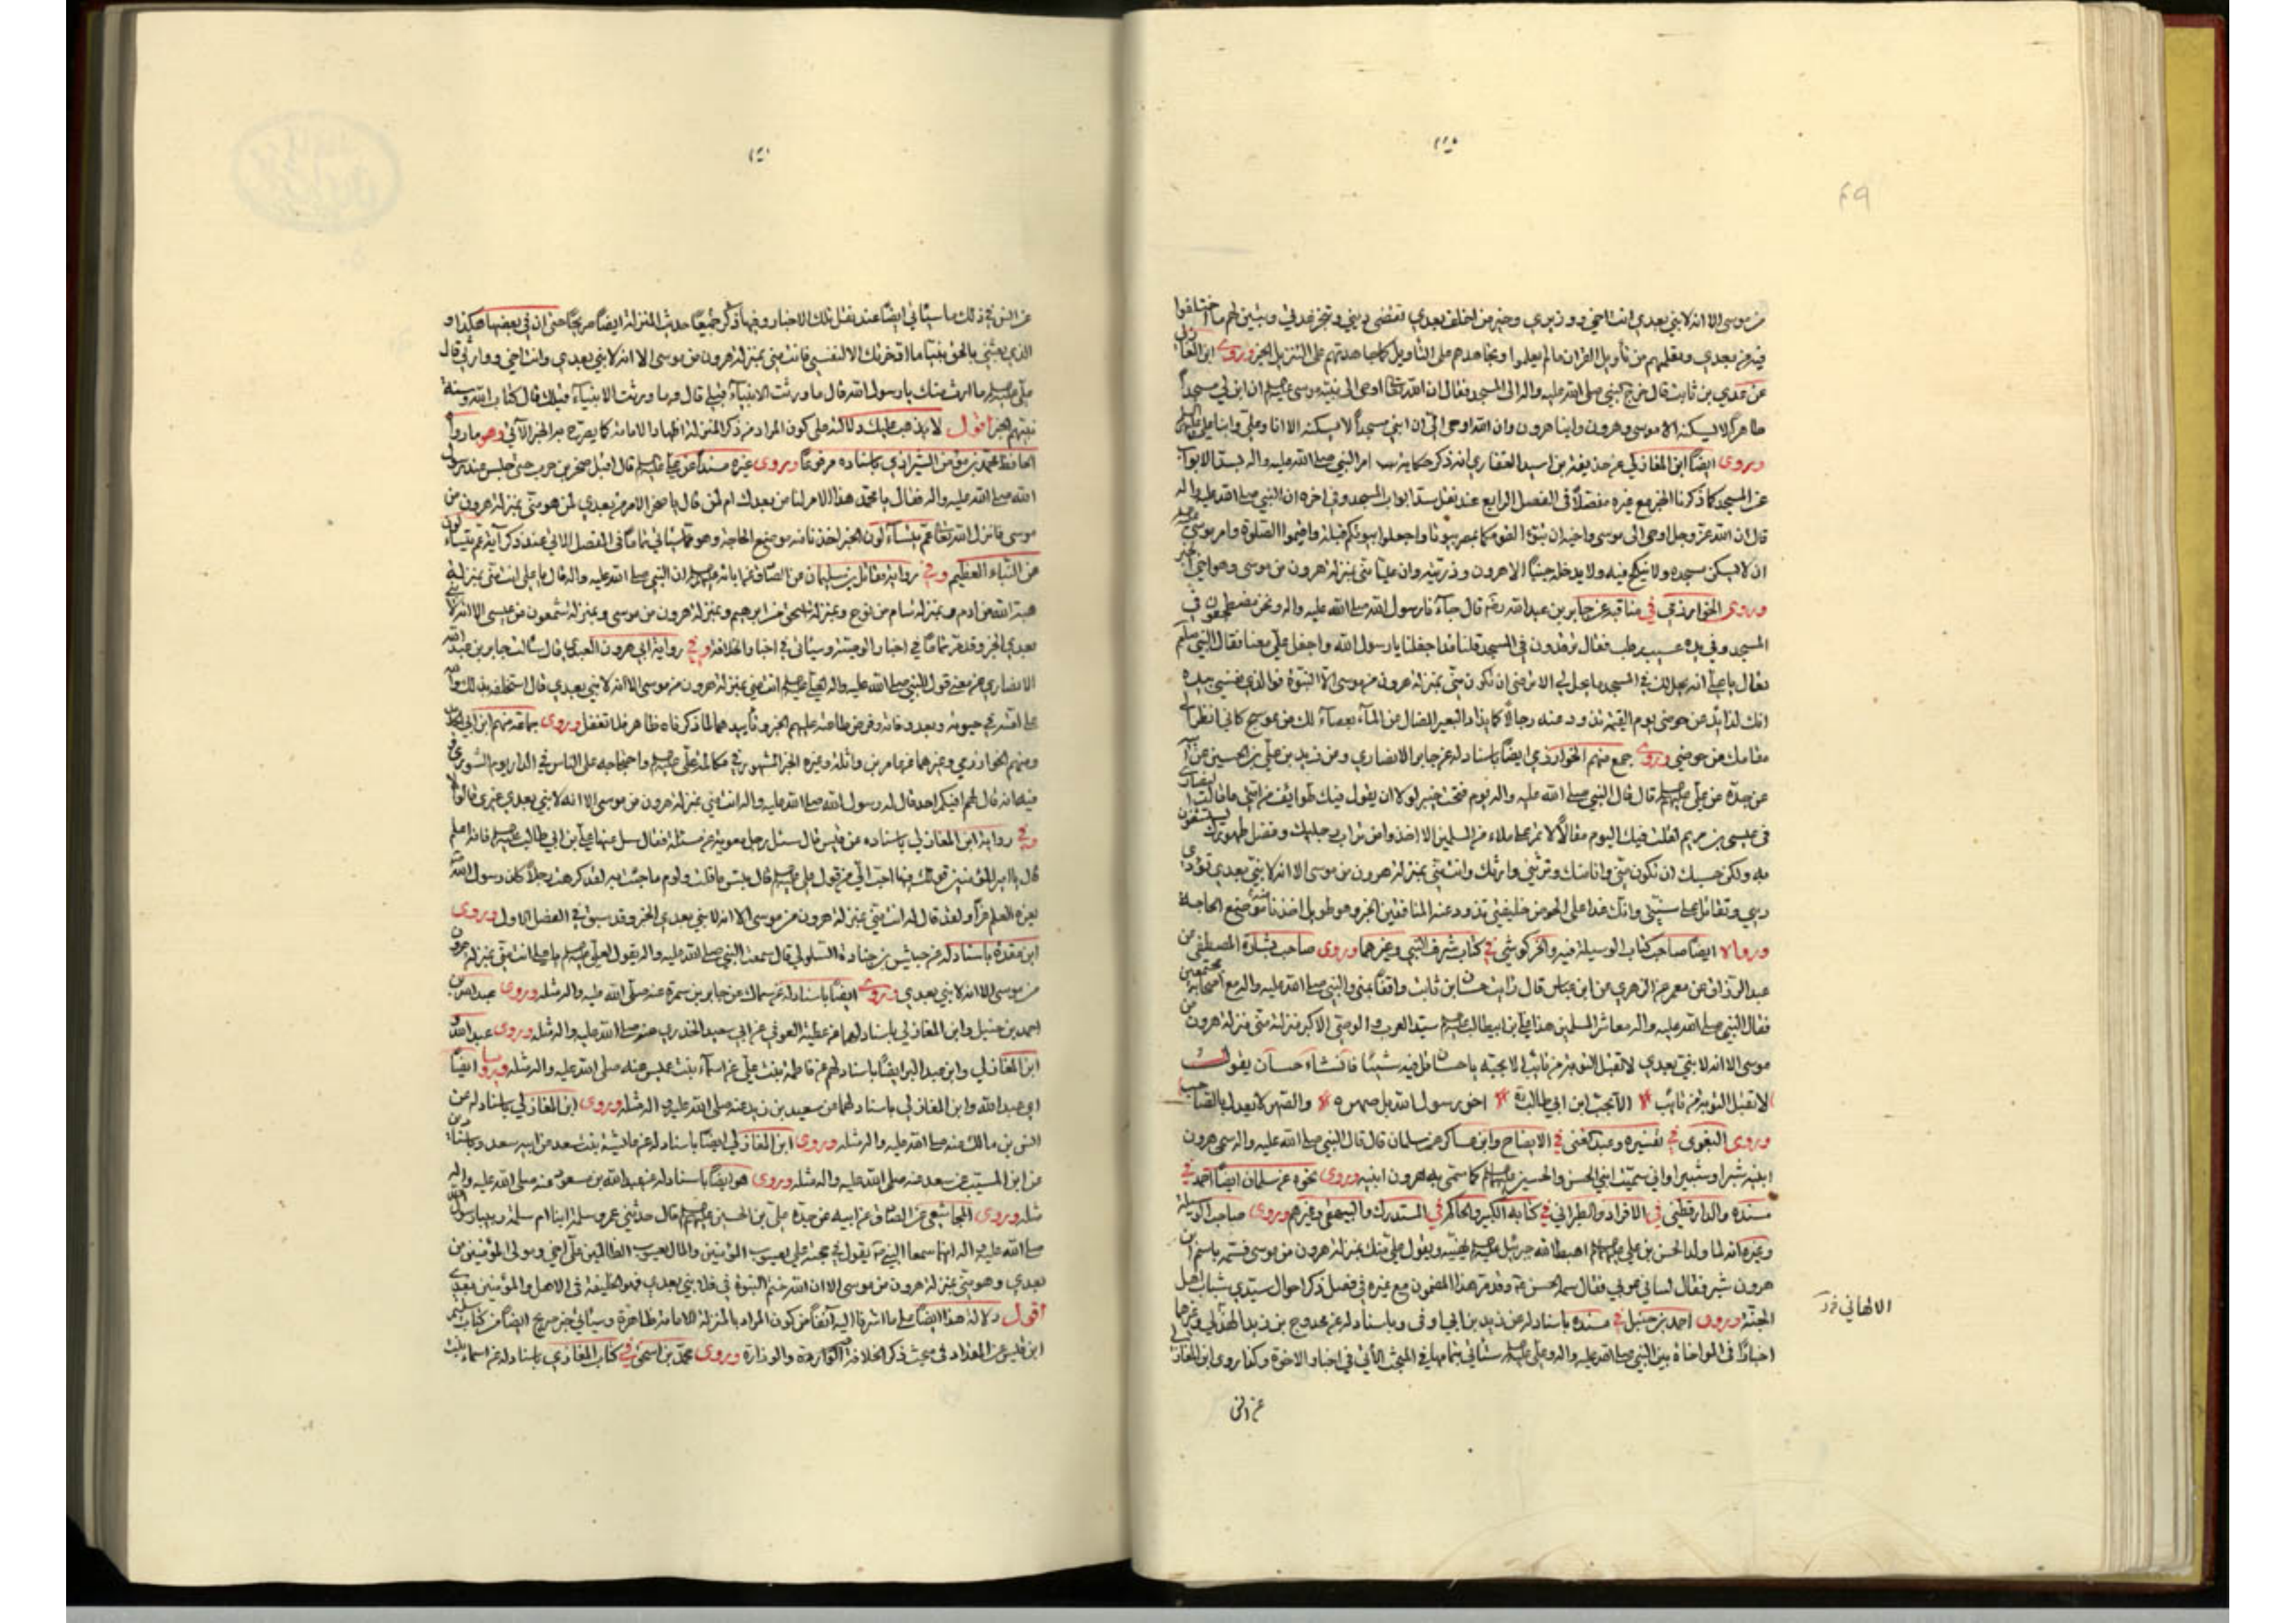 من موسى الا انه لا نبي بعدي انت اخي ووزيري وخير من اخلف بعدي تقضي ديني وتنجز عدتي وتبين لهم ما اختلفوا
فيه من بعدي وتعلمهم من تأويل القران ما لم يعلموا وتجاهدهم على التأويل كما جاهدتهم على التنزيل الخبر وروى ابن المغازلي
عن عدي بن ثابت قال خرج النبي صلى الله عليه واله الى المسجد فقال ان الله اوحى الى نبيه موسى ان ابن لي مسجداً
طاهراً لا يسكنه الا موسى وهرون وابنا هرون وان الله اوحى الي ان ابني مسجداً لا يسكنه الا انا وعلي وابنا علي
وروى ايضاً ابن المغازلي عن حذيفة بن اسيد الغفاري انه ذكر حكاية امر النبي صلى الله عليه واله بسد الابواب
عن المسجد كما ذكرنا الخبر مع غيره مفصلاً في الفصل الرابع عند نقل سد ابواب المسجد وفي اخره ان النبي صلى الله عليه واله
قال ان الله عز وجل اوحى الى موسى واخيه ان تبوءا لقومكما بمصر بيوتا واجعلوا بيوتكم قبلة واقيموا الصلوة وامر موسى
ان لا يسكن مسجده ولا ينكح فيه ولا يدخله جنب الا هرون وذريته وان عليا مني بمنزلة هرون من موسى وهو اخي الخبر
وروى الخوارزمي في مناقبه عن جابر بن عبد الله قال جاءنا رسول الله صلى الله عليه واله ونحن مضطجعون في
المسجد وفي يده عسيب رطب فقال ترقدون في المسجد قلنا قد اجفلنا يا رسول الله واجفل علي معنا فقال النبي
تعال يا علي انه يحل لك في المسجد ما يحل لي الا ترضى ان تكون مني بمنزلة هرون من موسى الا النبوة فوالذي نفسي بيده
انك لذائد عن حوضي يوم القيمة تذود عنه رجالاً كما يذاد البعير الضال عن الماء بعصاء لك من عوسج كاني انظر الى
مقامك من حوضي وروى جمع منهم الخوارزمي ايضاً باسناد له عن جابر الانصاري ومن زيد بن علي بن الحسين عن
عن جده عن علي قال قال النبي صلى الله عليه واله يوم فتحت خيبر لولا ان يقول فيك طوايف من امتي ما قالت النصارى
في عيسى بن مريم لقلت فيك اليوم مقالاً لا تمر بملاء من المسلمين الا اخذوا من تراب رجليك وفضل طهورك يستشفون
به ولكن حسبك ان تكون مني وانا منك وترثني وارثك وانت مني بمنزلة هرون من موسى الا انه لا نبي بعدي تؤدي
ديني وتقاتل على سنتي وانك غدا على الحوض خليفتي تذود عنه المنافقين الخبر وهو طويل اخذنا منه موضع الحاجة
ورواه ايضاً صاحب كتاب الوسيلة فيه والخركوشي في كتاب شرف النبي وغيرهما وروى صاحب بشارة المصطفى من
عبد الرزاق عن معمر عن الزهري عن ابن عباس قال رايت حسان بن ثابت واقفا بمنى والنبي صلى الله عليه واله مع اصحابه مجتمعين
فقال النبي صلى الله عليه واله معاشر المسلمين هذا علي بن ابيطالب سيد العرب والوصي الاكبر منزلته مني منزلة هرون من
موسى الا انه لا نبي بعدي لا تقبل التوبة من تائب الا بحبه يا حسان قل فيه شيئا فانشاء حسان يقول
لا تقبل التوبة من تائب * الا بحب ابن ابي طالب * اخو رسول الله بل صهره * والصهر لا يعدل بالصاحب
وروى البغوي في تفسيره وعبد الغني في الايضاح وابن عساكر عن سلمان قال قال النبي صلى الله عليه واله سمى هرون
ابنيه شبرا وشبيرا واني سميت ابني الحسن والحسين كما سمى به هرون ابنيه وروى نحوه عن سلمان ايضاً احمد في
مسنده والدارقطني في الافراد والطبراني في كتابه الكبير والحاكم في المستدرك والبيهقي وغيرهم وروى صاحب الوسيلة
وغيره انه لما ولد الحسن بن علي اهبط الله جبرئيل يهنيه ويقول علي منك بمنزلة هرون من موسى فسمه باسم ابن
هرون شبر فقال لساني عربي فقال سمه الحسن وقد مر هذا المضمون مع غيره في فصل ذكر احوال سيدي شباب اهل
الجنة وروى احمد بن حنبل في مسنده باسناد له عن زيد بن ابي اوفى وباسناد له عن محدوج بن زيد الهذلي وغيرهما
اخبارًا في المواخاة بين النبي صلى الله عليه واله وعلي ستأتي بتمامها في المبحث الآتي في اخبار الاخوة وكذا روى ابن المغازلي
عن انس
عن انس في ذلك ما سيأتي ايضا عند نقل تلك الاخبار وفيها ذكر جميعا حديث المنزلة ايضاً صريحاً حتى ان في بعضها هكذا و
الذي بعثني بالحق نبيا ما اخرتك الا لنفسي فانت مني بمنزلة هرون من موسى الا انه لا نبي بعدي وانت اخي ووارثي قال
علي ما ارث منك يا رسول الله قال ما ورثت الانبياء قبلي قال وما ورثت الانبياء قبلك قال كتاب الله وسنة
نبيهم الخبر اقول لا يذهب عليك دلالته على كون المراد من ذكر المنزلة اظهار الامامة كما يصرح به الخبر الآتي وهو ما رواه
الحافظ محمد بن مؤمن الشيرازي باسناده مرفوعاً وروى غيره مسنداً عن علي قال اقبل صخر بن حرب حتى جلس عند رسول
الله صلى الله عليه واله فقال يا محمد هذا الامر لنا من بعدك ام لمن قال يا صخر الامر من بعدي لمن هو مني بمنزلة هرون من
موسى فانزل الله تعالى عم يتساءلون الخبر اخذنا منه موضع الحاجة وهو مما سيأتي تماما في المفصل الاتي عند ذكر آية عم يتساءلون
عن النباء العظيم وفي رواية مقاتل بن سليمان عن الصادق عن ابائه ان النبي صلى الله عليه واله قال يا علي انت مني بمنزلة
هبة الله من ادم وبمنزلة سام من نوح وبمنزلة اسحق من ابرهيم وبمنزلة هرون من موسى وبمنزلة شمعون من عيسى الا انه لا نبي
بعدي الخبر وقد مر تماما في اخبار الوصية وسيأتي في اخبار الخلافة وفي رواية ابي هرون العبدي قال سألت جابر بن عبد الله
الانصاري عن معنى قول النبي صلى الله عليه واله لعلي انت مني بمنزلة هرون من موسى الا انه لا نبي بعدي قال استخلفه بذلك والله
على امته في حيوته وبعد وفاته وفرض طاعته عليهم الخبر وتأييدهما لما ذكرناه ظاهر فلا تغفل وروى جماعة منهم ابن ابي الحديد
ومنهم الخوارزمي وغيرهما عن عامر بن واثلة وغيره الخبر المشهور في مكالمة علي واحتجاجه على الناس في الدار يوم الشورى
فيه انه قال لهم افيكم احد قال له رسول الله صلى الله عليه واله انت مني بمنزلة هرون من موسى الا انه لا نبي بعدي غيري قالوا لا
وفي رواية ابن المغازلي باسناده عن قيس قال سئل رجل معوية عن مسئلة فقال سل عنها علي بن ابي طالب فانه اعلم
قال يا امير المؤمنين قولك فيها احب الي من قول علي قال بئس ما قلت ولوم ما جئت به لقد كرهت رجلاً كان رسول الله
يغره العلم غرا ولقد قال له انت مني بمنزلة هرون من موسى الا انه لا نبي بعدي الخبر وقد سبق في الفصل الاول وروى
ابن عقدة باسناد له عن حبشي بن جنادة السلولي قال سمعت النبي صلى الله عليه واله يقول لعلي يا علي انت مني بمنزلة هرون
من موسى الا انه لا نبي بعدي وروى ايضاً باسناد له عن سماك عن جابر بن سمرة عنه صلى الله عليه واله مثله وروى عبد الله بن
احمد بن حنبل وابن المغازلي باسناد لهما عن عطية العوفي عن ابي سعيد الخدري عنه صلى الله عليه واله مثله وروى عبد الله و
ابن المغازلي وابن عبد البر ايضاً باسناد لهم عن فاطمة بنت علي عن اسماء بنت عميس عنه صلى الله عليه واله مثله ورويا ايضاً
ابي عبد الله وابن المغازلي باسناد لهما عن سعيد بن زيد عنه صلى الله عليه واله مثله وروى ابن المغازلي باسناد له عن
انس بن مالك عنه صلى الله عليه واله مثله وروى ابن المغازلي ايضاً باسناد له عن عايشة بنت سعد عن ابيه سعد وباسناد
عن ابن المسيب عن سعد عنه صلى الله عليه واله مثله وروى هو ايضاً باسناد له عن عبد الله بن مسعود عنه صلى الله عليه واله
مثله وروى المجاشعي عن الصادق عن ابيه عن جده علي بن الحسين قال حدثني عمر وسلمة ابنا ام سلمة ربيبا رسول الله
صلى الله عليه واله انهما سمعا النبي يقول في حجته علي يعسوب المؤمنين والمال يعسوب الظالمين علي اخي ومولى المؤمنين من
بعدي وهو مني بمنزلة هرون من موسى الا ان الله ختم النبوة بي فلا نبي بعدي فهو الخليفة في الاهل والمؤمنين بعدي
اقول دلالة هذا ايضا على ما اشرنا اليه آنفا من كون المراد بالمنزلة الامامة ظاهرة وسيأتي خبر صريح ايضا من كتاب سليم
ابن قيس عن المقداد في مبحث ذكر الخلافة والوزارة وروى محمد بن اسحق في كتاب المغازي باسناد له عن اسماء بنت